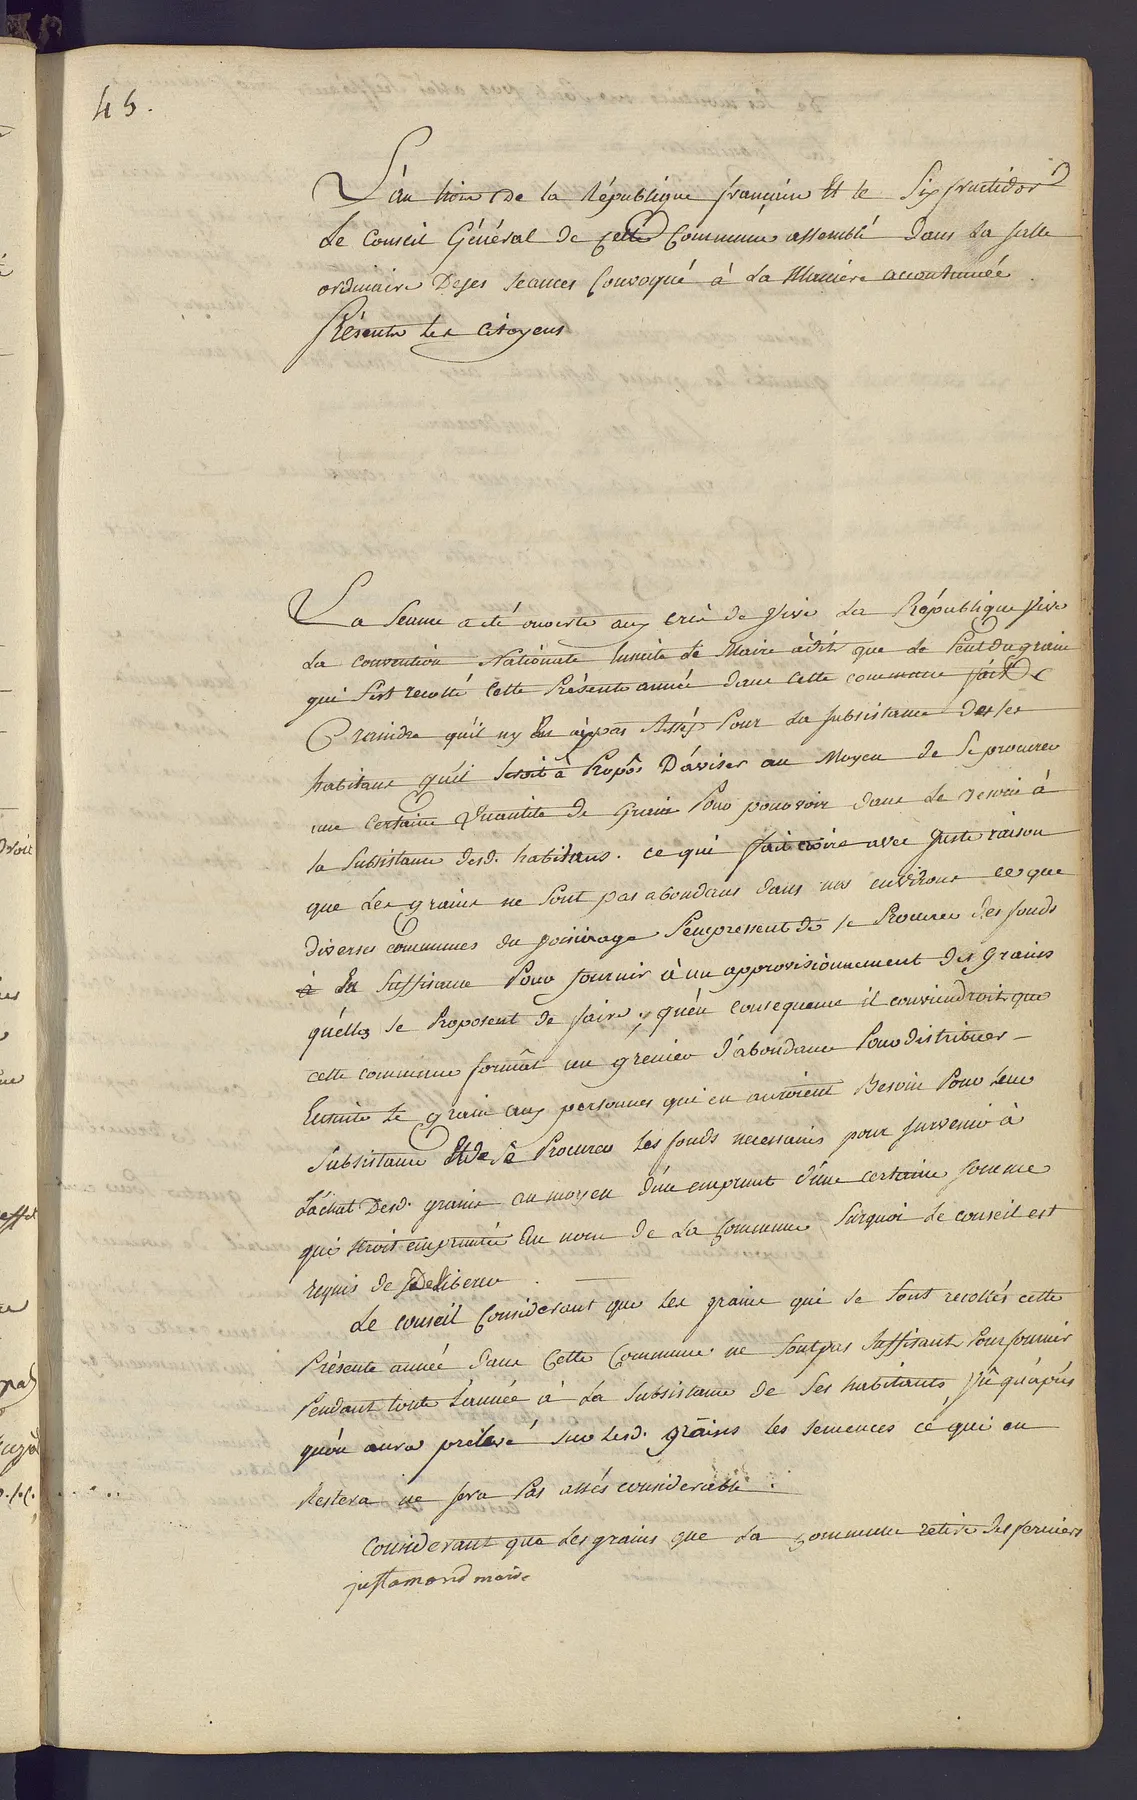 45.
L'an trois De la République francaise Et le Six fructidor
Le Conseil Général de cette Commune assemblé dans La salle
ordinaire De ses seances Convoqué à La Maniere accoutumée
Présents les Citoyens
La Seance a été ouverte aux cris de Vive La République Vive
La convention Nationale Ensuite Le Maire a dit que Le Peu Du grain
qui s'est recolté Cette Présente année dans Cette commune fait De
Craindre qu'il n'y En ait pas Assés Pour La subsistance des ses
habitans qu'il seroit à Propôs D'aviser au Moyen de Se procurer
une Certaine Quantité de Grain Pour pouvoir dans le besoin à
la Subsistance desd. habitans. ce qui fait croire avec Juste raison
que Les grains ne Sont pas abondans dans nos environs c'est que
diverses Communes du voisinage S'empressent de se Procurer des fonds
En Suffisance Pour fournir à un approvisionnement des Grains
qu'elles se Proposent de faire, qu'en consequence il conviendroit que
cette commune formât un grenier d'abondance Pour distribuer
Ensuite Le grain aux personnes qui en auroient Besoin Pour leur
Subsistance Et de Sê Procurer les fonds necessaires pour survenir à
L'achat Desd. grains au moyen d'un emprunt d'une certaine somme
qui seroit empruntée Au nom de La Commune Surquoi Le conseil est
requis de Deliberer.
Le Conseil Considerant que Les grains qui se Sont recoltés cette
Présente année dans Cette Commune ne Sont pas Suffisant Pour fournir
Pendant toute L'année à La Subsistance de Ses habitants, Vû qu'après
qu'on aura prélevé sur lesd. grains les semences ce qui en
Restera ne sera Pas assés considerable.
Considerant que Les grains que La commune retire des fermiers
justamond maire